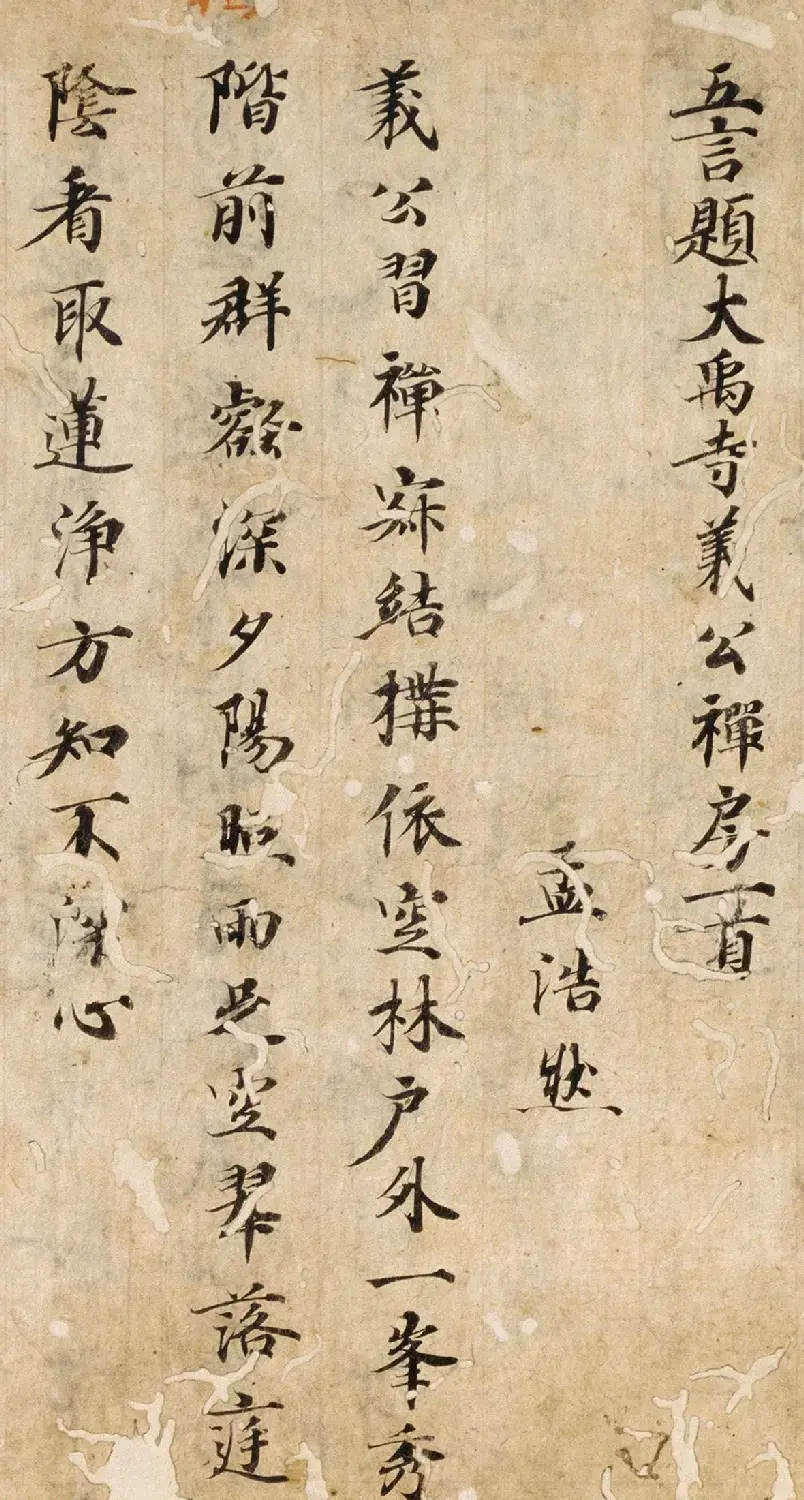 五言題大禹寺義公禪房一首
孟浩然
義公習禪寂結構依空林戶外一峯秀
階前群壑深夕陽照雨足空翠落庭
陰看取蓮淨方知不染心